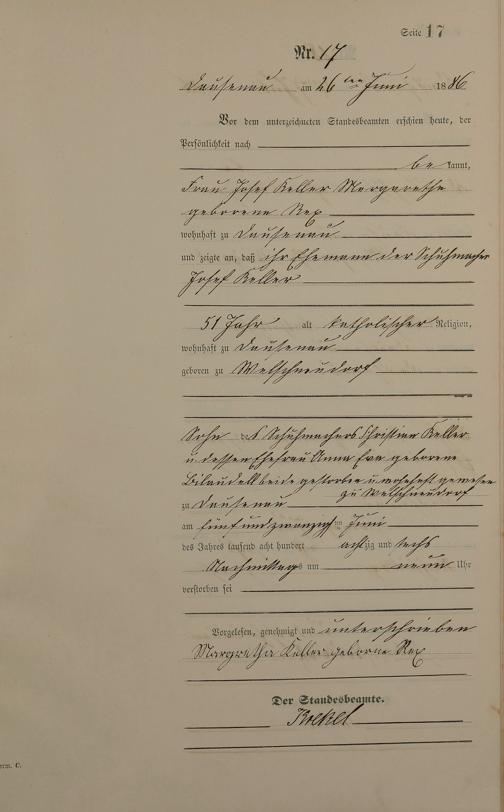 Seite 17
Nr. 17
Dausenau am 26ten Juni 1886
Vor dem unterzeichneten Standesbeamten erschien heute, der
Persönlichkeit nach
be kannt,
Frau Josef Keller Margarethe
geborene Rex
wohnhaft zu Dausenau
und zeigte an, daß ihr Ehemann der Schuhmacher
Josef Keller
51 Jahr alt katholischer Religion,
wohnhaft zu Dausenau
geboren zu Welschneudorf
Sohn des Schuhmachers Christian Keller
u dessen Ehefrau Anna Eva geborene
beide gestorben u wohnhaft gewesen
zu Welschneudorf
zu Dausenau
am fünfundzwanzigsten Juni
des Jahres tausend acht hundert achtzig und sechs
Nachmittags um neun Uhr
verstorben sei
Vorgelesen, genehmigt und unterschrieben
Margretha Keller geborne Rex
Der Standesbeamte.
orm. C.